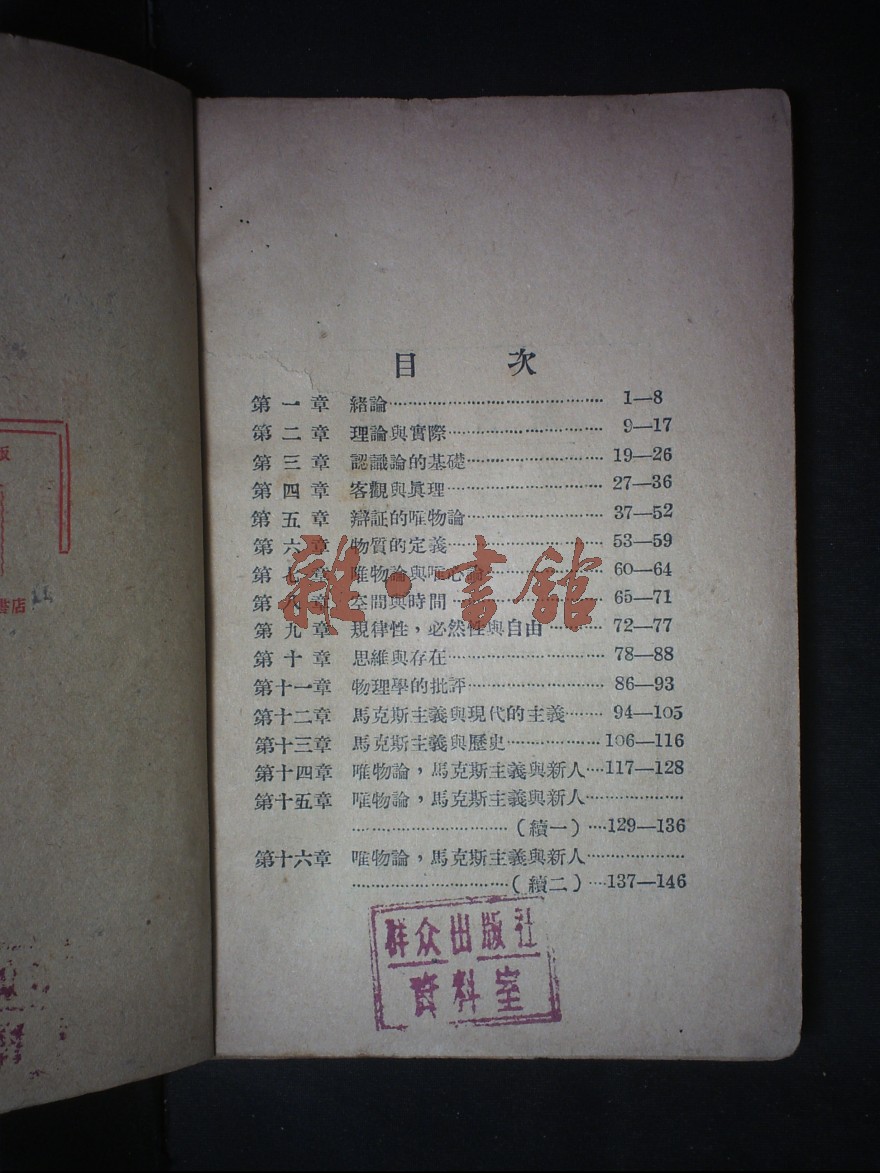 目 次
第一章 緒論 1—8
第二章 理論與實際 9—17
第三章 認識論的基礎 19—26
第四章 客觀與眞理 27—36
第五章 辯証的唯物論 37—52
第六章 物質的定義 53—59
第七章 唯物論與唯心論 60—64
第八章 空間與時間 65—71
第九章 規律性，必然性與自由 72—77
第十章 思維與存在 78—88
第十一章 物理學的批評 86—93
第十二章 馬克斯主義與現代的主義 94—105
第十三章 馬克斯主義與歷史 106—116
第十四章 唯物論，馬克斯主義與新人 117—128
第十五章 唯物論，馬克斯主義與新人
（續一） 129—136
第十六章 唯物論，馬克斯主義與新人
（續二） 137—146
雜·書館
群众出版社
資料室
版
書店